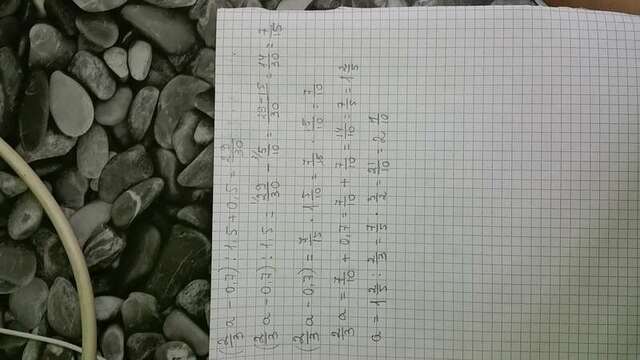 (2/3 a - 0,7) : 1,5 + 0,5 = 29/30
(2/3 a - 0,7) : 1,5 = ¹⁄29/30 - ¹⁄5/10 = 29-15/30 = 14/30 = 7/15
(2/3 a - 0,7) = 7/15 · 1 5/10 = 7/15 · 15/10 = 7/10
2/3 a = 7/10 + 0,7 = 7/10 + 7/10 = 14/10 = 7/5 = 1 2/5
a = 1 2/5 : 2/3 = 7/5 · 3/2 = 21/10 = 2 1/10